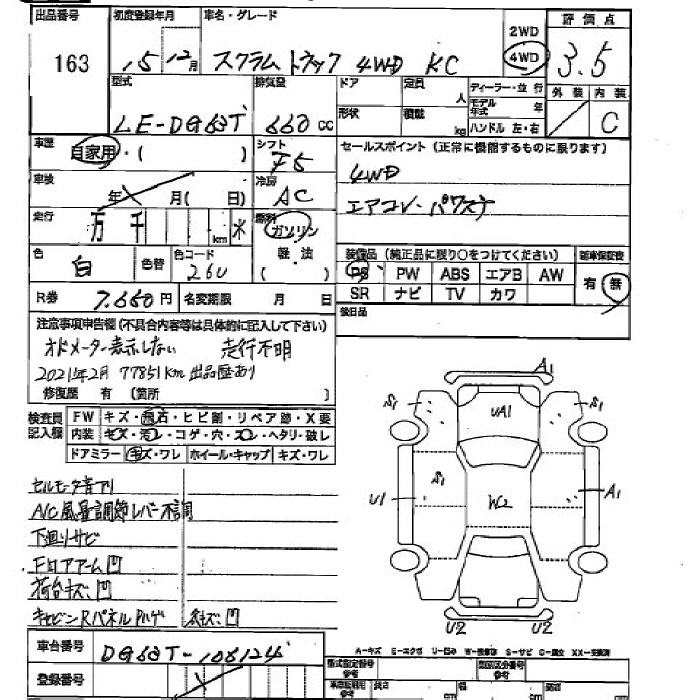 出品番号 初度登録年月 車名・グレード 2WD 評価点
163 15 12月 スクラム トラック 4WD KC 4WD 3.5
型式 排気量 ドア 定員 人 ディーラー・並行 外装 内装
LE-DG63T 660cc 形状 積載 kg モデル年式 年 C
ハンドル 左・右
車歴 自家用・( ) シフト F5 セールスポイント (正常に機能するものに限ります)
車検 年 月( 日) 冷房 AC 4WD
走行 万 千 km 燃料 ガソリン エアコン・パワステ
色 白 色替 色コード 26U 軽・油 ( ) 装備品 (純正品に限り○をつけてください) 新車保証書
PS PW ABS エアB AW 有・無
R券 7.660円 名変期限 月 日 SR ナビ TV カワ
注意事項申告欄 (不具合内容等は具体的に記入して下さい) 後日品
オドメーター表示しない 走行不明
2021年2月 77851km 出品歴あり
修復歴 有 (箇所 )
検査員記入欄 FW キズ・飛石・ヒビ割・リペア跡・X要
内装 キズ・汚レ・コゲ・穴・スレ・ヘタリ・破レ
ドアミラー キズ・ワレ ホイール・キャップ キズ・ワレ
A1
S1 UA1 S1
U1 S1 W2 A1
U2 U2
セルモータ音アリ
A/C風量調節レバー不調
下廻りサビ
Fロアアーム凹
荷台キズ・凹
キャビンRパネルPハゲ キズ・凹
車台番号 DG63T-106124
A-キズ E-エクボ U-凹み W-補修跡 S-サビ C-腐食 XX-交換済
登録番号 型式指定番号 参考 類別区分番号 参考
長さ cm cm cm